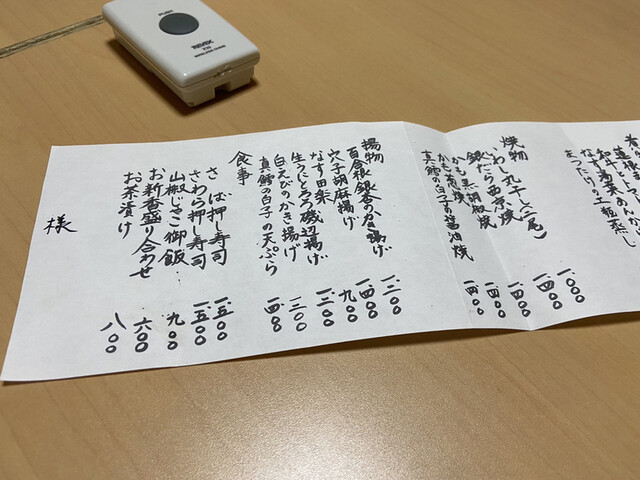 PUSH
REVEX
まつたけの土瓶蒸し
焼物
いわし丸干し(二尾) 一、〇〇〇
銀だら西京焼 一、四〇〇
かも黒胡椒焼 一、四〇〇
かも葱焼 一、四〇〇
真鱈の白子の醤油焼 一、四〇〇
揚物
百合根銀杏のかき揚げ 一、二〇〇
穴子胡麻揚げ 一、四〇〇
なす田楽 九〇〇
生うにとろろ磯辺揚げ 一、三〇〇
白えびのかき揚げ 一、二〇〇
真鱈の白子の天ぷら 一、四〇〇
食事
さば押し寿司 一、五〇〇
さわら押し寿司 一、五〇〇
山椒じゃこ御飯 九〇〇
お新香盛り合わせ 六〇〇
お茶漬け 八〇〇
様